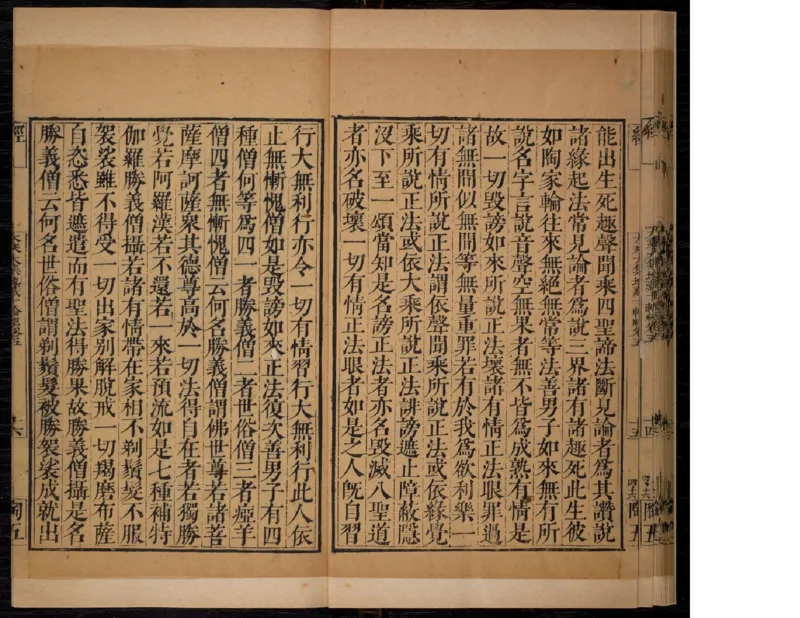 能出生死趣聲聞乘四聖諦法斷見論者爲其讚說
諸緣起法常見論者爲說三界諸有諸趣死此生彼
如陶家輪往來無絕無常等法善男子如來無有所
說名字言說音聲空無果者無不皆爲成熟有情是
故一切毀謗如來所說正法壞諸有情正法眼罪過
諸無間似無間等無量重罪若有於我爲欲利樂一
切有情所說正法謂依聲聞乘所說正法或依緣覺
乘所說正法或依大乘所說正法誹謗遮止障蔽隱
沒下至一頌當知是名謗正法者亦名毀滅八聖道
者亦名破壞一切有情正法眼者如是之人旣自習
行大無利行亦令一切有情習行大無利行此人依
止無慚愧僧如是毀謗如來正法復次善男子有四
種僧何等爲四一者勝義僧二者世俗僧三者瘂羊
僧四者無慚愧僧云何名勝義僧謂佛世尊若諸菩
薩摩訶薩衆其德尊高於一切法得自在者若獨勝
覺若阿羅漢若不還若一來若預流如是七種補特
伽羅勝義僧攝若諸有情帶在家相不剃鬚髮不服
袈裟雖不得受一切出家別解脫戒一切羯磨布薩
自恣悉皆遮遣而有聖法得勝果故勝義僧攝是名
勝義僧云何名世俗僧謂剃鬚髮被服袈裟成就出
經
十六